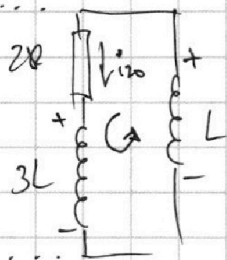 2R
i20
+
+
L
3L
-
-